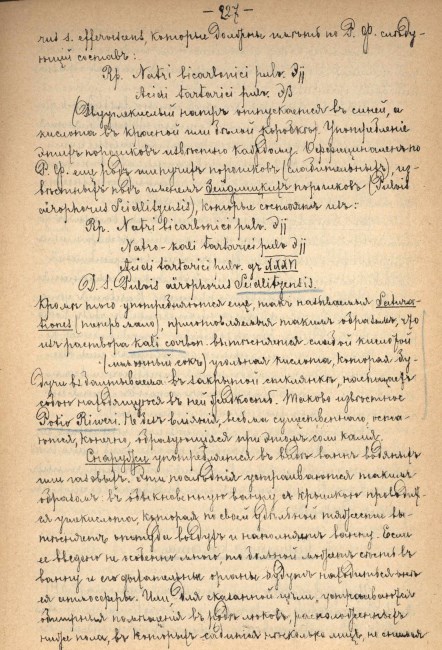 — 227 —
rus s. effervescens, которые должны имѣть по Р. Ф. слѣду-
ющій составъ:
Rp. Natri bicarbonici pulv. ʒjj
Acidi tartarici pulv. ʒβ
(Двууглекислый натръ отпускается въ синей, а
кислота въ красной или бѣлой коробкѣ). Употребленіе
этихъ порошковъ извѣстно каждому. Оффицинален по
Р. Ф. еще родъ шипучихъ порошковъ (слабительныхъ), из-
вѣстныхъ подъ именемъ Зейдлицкихъ порошковъ (Pulvis
aërophorus Seidlitzensis), которые состоятъ изъ:
Rp. Natri bicarbonici pulv. ʒjj
Natro-kali tartarici pulv. ʒjj
Acidi tartarici pulv. gr
D. S. Pulvis aërophorus Seidlitzensis.
Кромѣ того употребляются еще, такъ называемыя Satura-
tiones (теперь мало), приготовляемыя такимъ образомъ, что
изъ раствора kali carbon. вытѣсняется слабой кислотой
(лимонный сокъ) угольная кислота, которая бу-
дучи въ закрытой стклянкѣ, насыщаетъ
собою находящуюся въ ней жидкость. Таково извѣстное
Potio Riveri. Не безъ вліянія, весьма существеннаго, оста-
ются, конечно, образующіяся при этомъ соли калія.
Снаружи употребляется въ видѣ ваннъ водяныхъ
или газовыхъ. Эти послѣднія устраиваются такимъ
образомъ: въ обыкновенную ванну съ крышкою проводит-
ся углекислота, которая по своей удѣльной тяжести вы-
тѣсняетъ оттуда воздухъ и наполняетъ ванну. Если
ее введено не особенно много, то больной можетъ сѣсть въ
ванну и его дыхательные органы будутъ находиться внѣ
ея атмосферы. Или, для сказанной цѣли, устраиваются
обширныя помѣщенія въ родѣ люковъ, расположенныхъ
ниже пола, въ которыхъ садится нѣсколько лицъ, не снимая